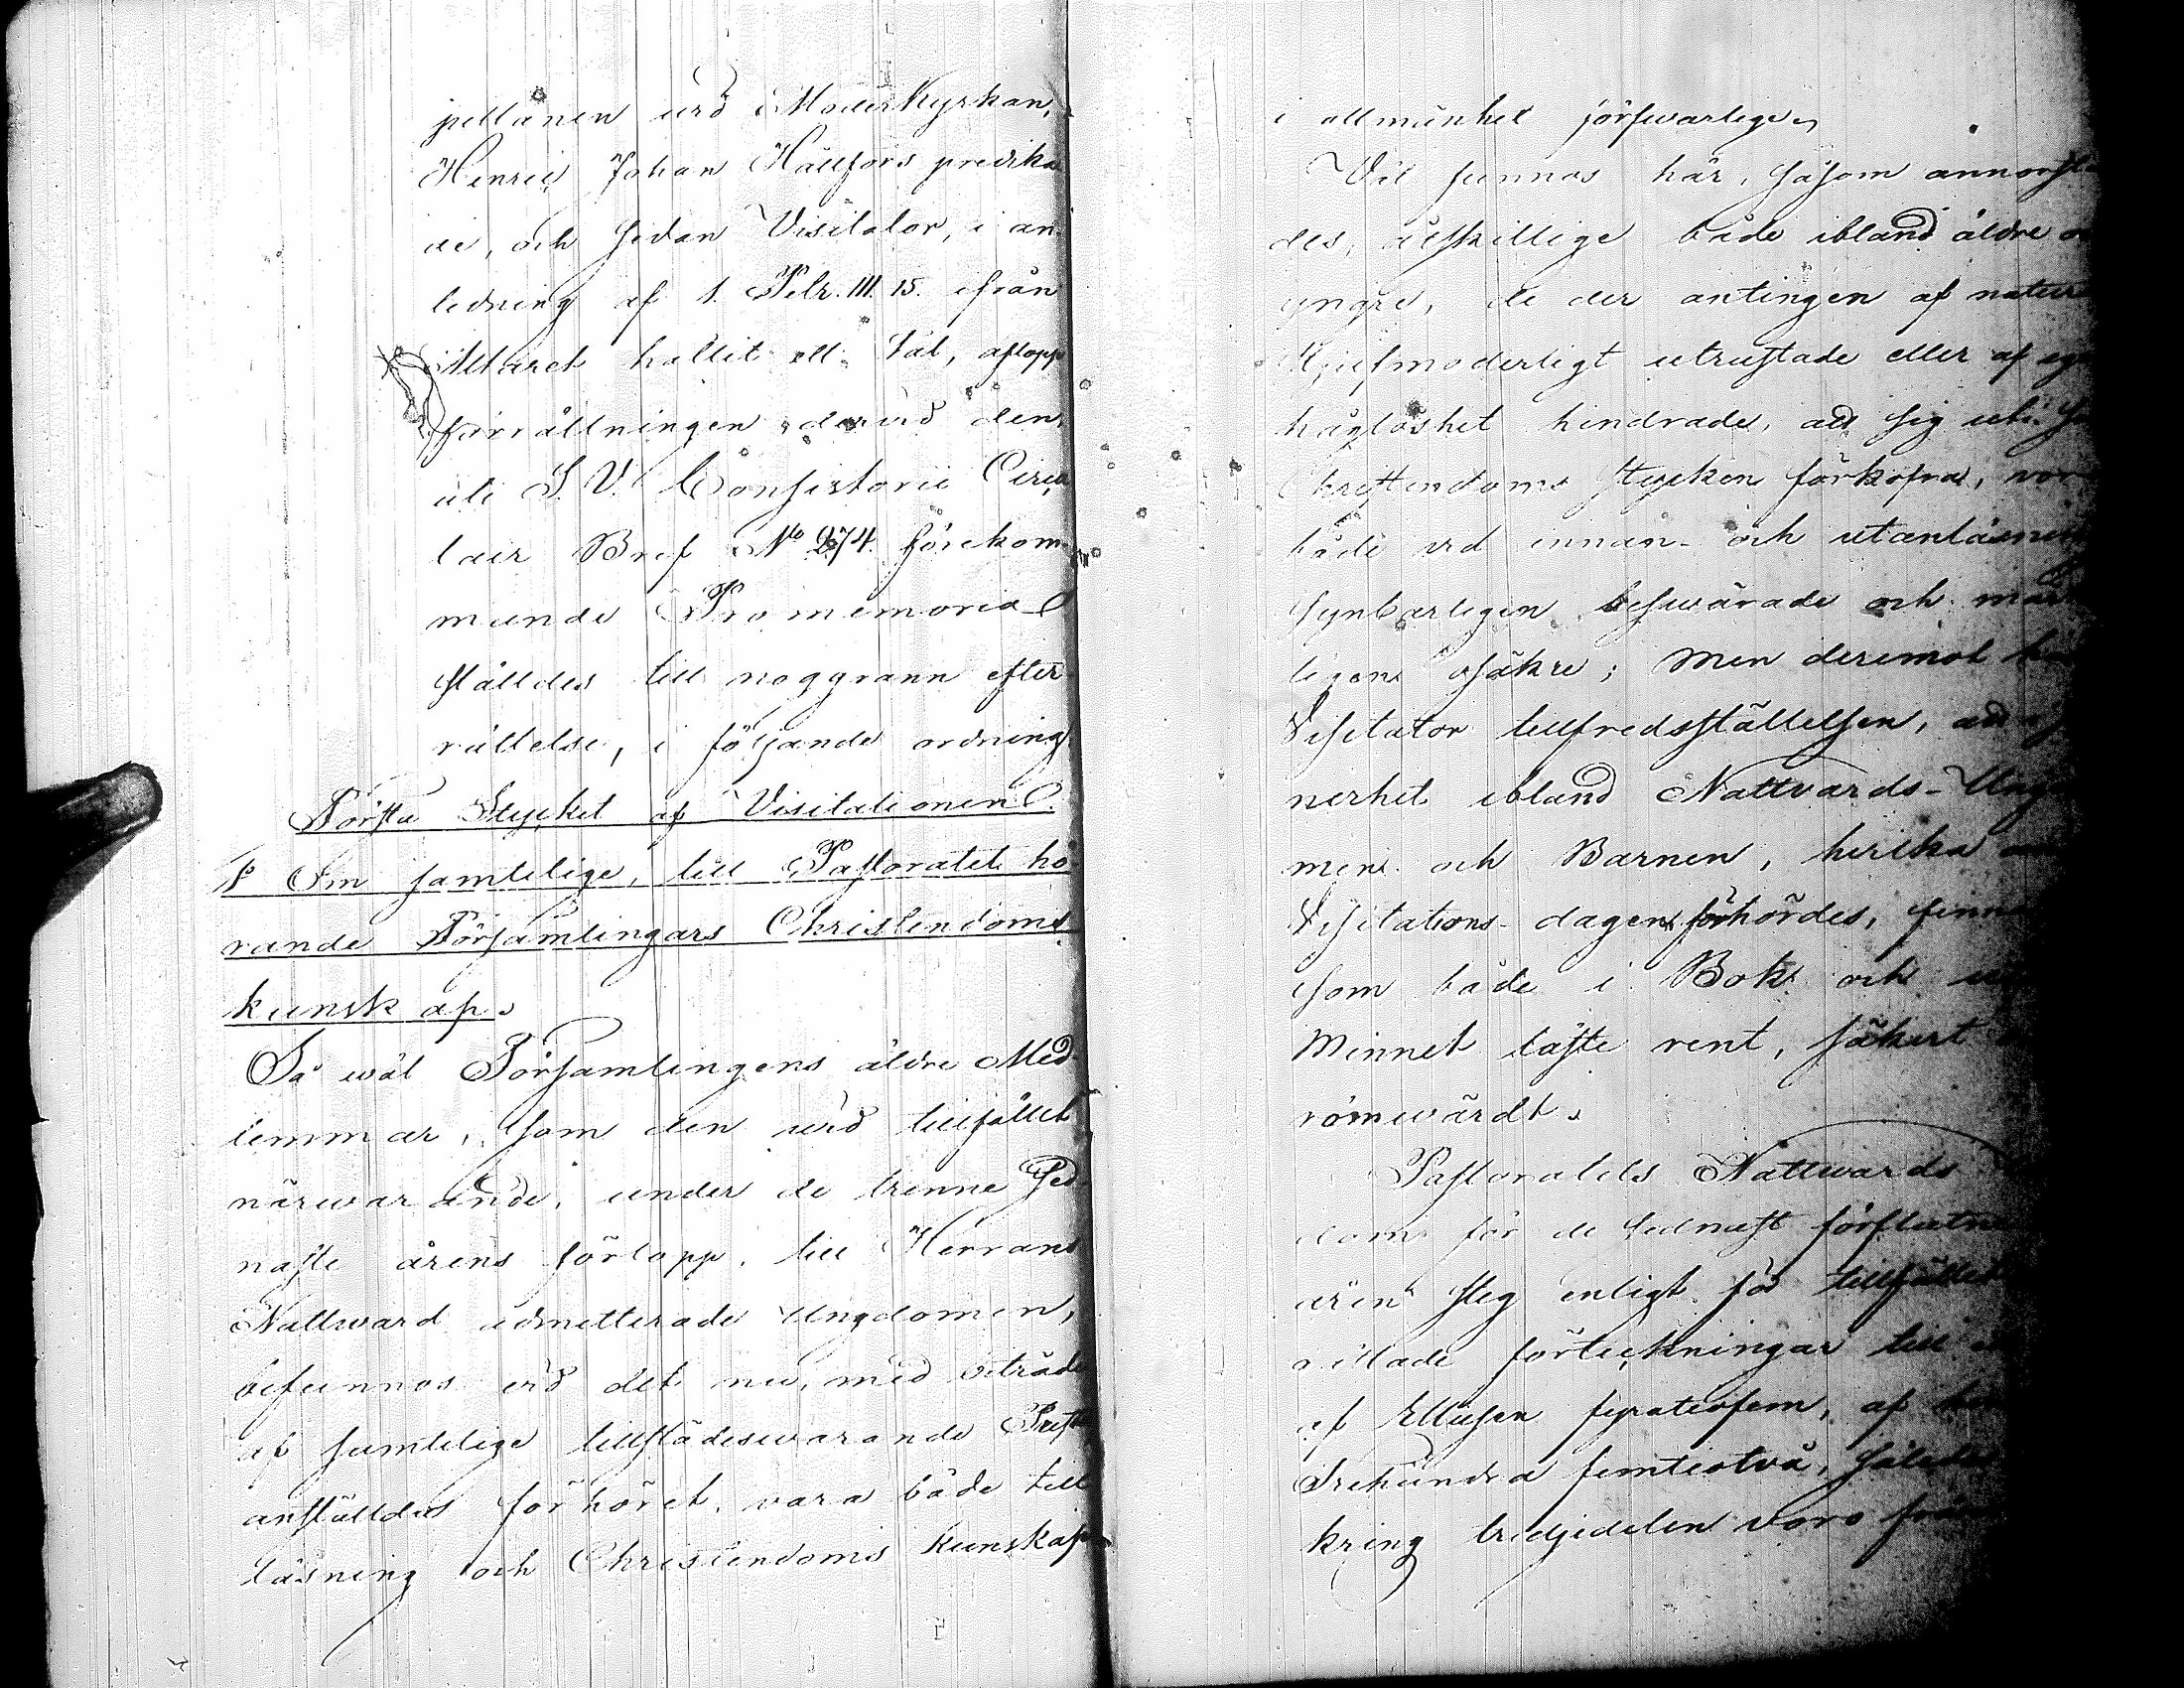 pellanen vid Moderkyrkan,
Henric Johan Hällfors predika
de, och sedan Visitator, i an
ledning af 1. Petr. III. 15. ifrån
Altaret hållit ett tal, aflopp
förrättningen dervid den
uti S. V. Consistorii Circu
lair Bref No 274. förekom-
mande Promemoria
ställdes till noggrann efter
rättelse, i följande ordning
Första Stycket af Visitationen.
1o Om samtelige, till Pastoratet hö
rande Församlingars Christendoms
kunskap.
Så wäl Församlingens äldre Med
lemmar, som den wid tillfället
närwarande, under de trenne sed
naste årens förlopp, till Herrans
Nattward admitterade Ungdomen,
befunnos vid det nu, med biträde
af samtelige tillstädeswarande Prest
anställdes förhöret, vara både till
läsning och Christendoms kunskap
i allmänhet förswarlige.
Väl funnos här, såsom annorstä
des, åtskillige både ibland äldre
yngre, de der antingen af natur
stjufmoderligt utrustade eller af eg
håglöshet hindrade, att sig uti
Christendoms stycken förkofra, vor
både vid innan- och utanläsni
synbarligen beswärade och mär
ligen osäkre; Men deremot
Visitator tillfredsställelsen, att
nerhet ibland Nattvards-Ung
men och Barnen, hvilka
Visitations-dagen förhördes, finna
som både i Bok och
Minnet läste rent, säkert
römwärdt.
Pastoratets Nattwards
dom för de sednast förflutne
åren steg enligt för tillfället
rättade förteckningar till
af Ellufen fyratiofem, af
Trehundra femtiotvå, således
kring tredjedelen voro från